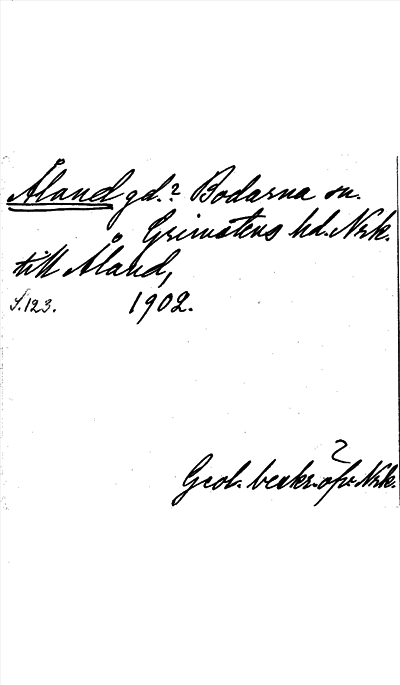 Åland gd.? Bodarna sn.
Grimstens hd. Nrk.
till Åland,
S. 123. 1902.
?
Geol. beskr. öfv. Nrk.